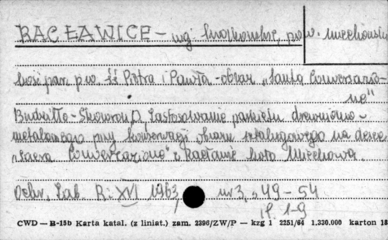 RACŁAWICE – wg Smoleńska, pow. miechowski
kościół par. p.w. śś Piotra i Pawła – obraz „Santa Conversazio-
ne"
Budwiłło-Skoworon D. Zastosowanie parkietu drewniano-
metalowego przy konserwacji obrazu sztalugowego na desce
„Sacra Conversazione" z Racławic koło Miechowa.
Ochr. Zab. R: XVI 1963, nr 3, s 49 – 54
il. 1-9
CWD — B-15b Karta katal. (z liniat.) zam. 2296/ZW/P — kzg 1 2251/64 1.336.000 karton